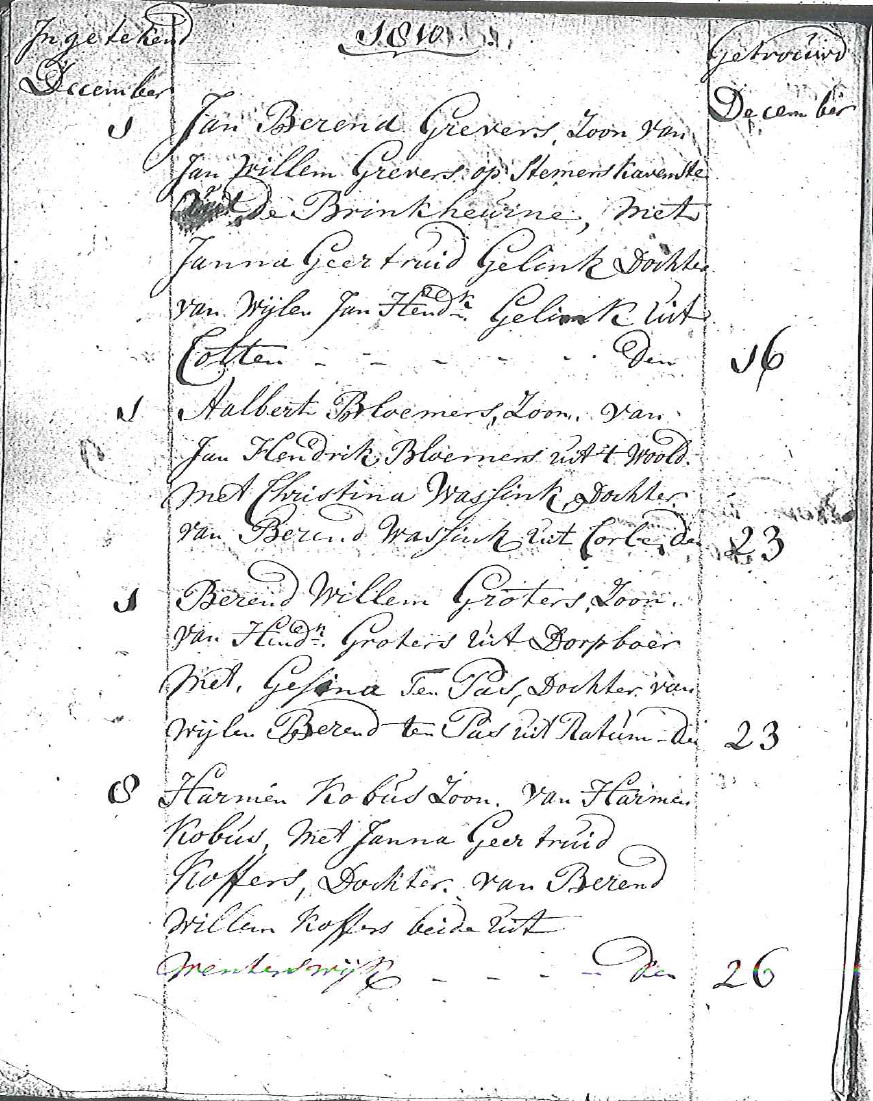 Ingetekend
1810.
Getrouwd
December
December
1 Jan Berend Grevers, Zoon van
Jan Willem Grevers op Stemerskavenste
uit de Brinkheurne, met
Janna Geertruid Gelink Dochter
van wijlen Jan Hendk. Gelink uit
Cotten - - - - - - Den 16
1 Aalbert Bloemers, Zoon. van
Jan Hendrik Bloemers uit 't Woold.
met Christina Wassink, Dochter
van Berend Wassink uit Corle, den 23
1 Berend Willem Groters, Zoon.
van Hendk. Groters uit Dorpboer
met. Gesina Ten Pas, Dochter van
wijlen Berend ten Pas uit Ratum - den 23
8 Harmen Kobus Zoon. van Harmen
Kobus, met Janna Geertruid
Koffers, Dochter. van Berend
Willem Koffers beide uit
Wenterswijk - - - - Den 26